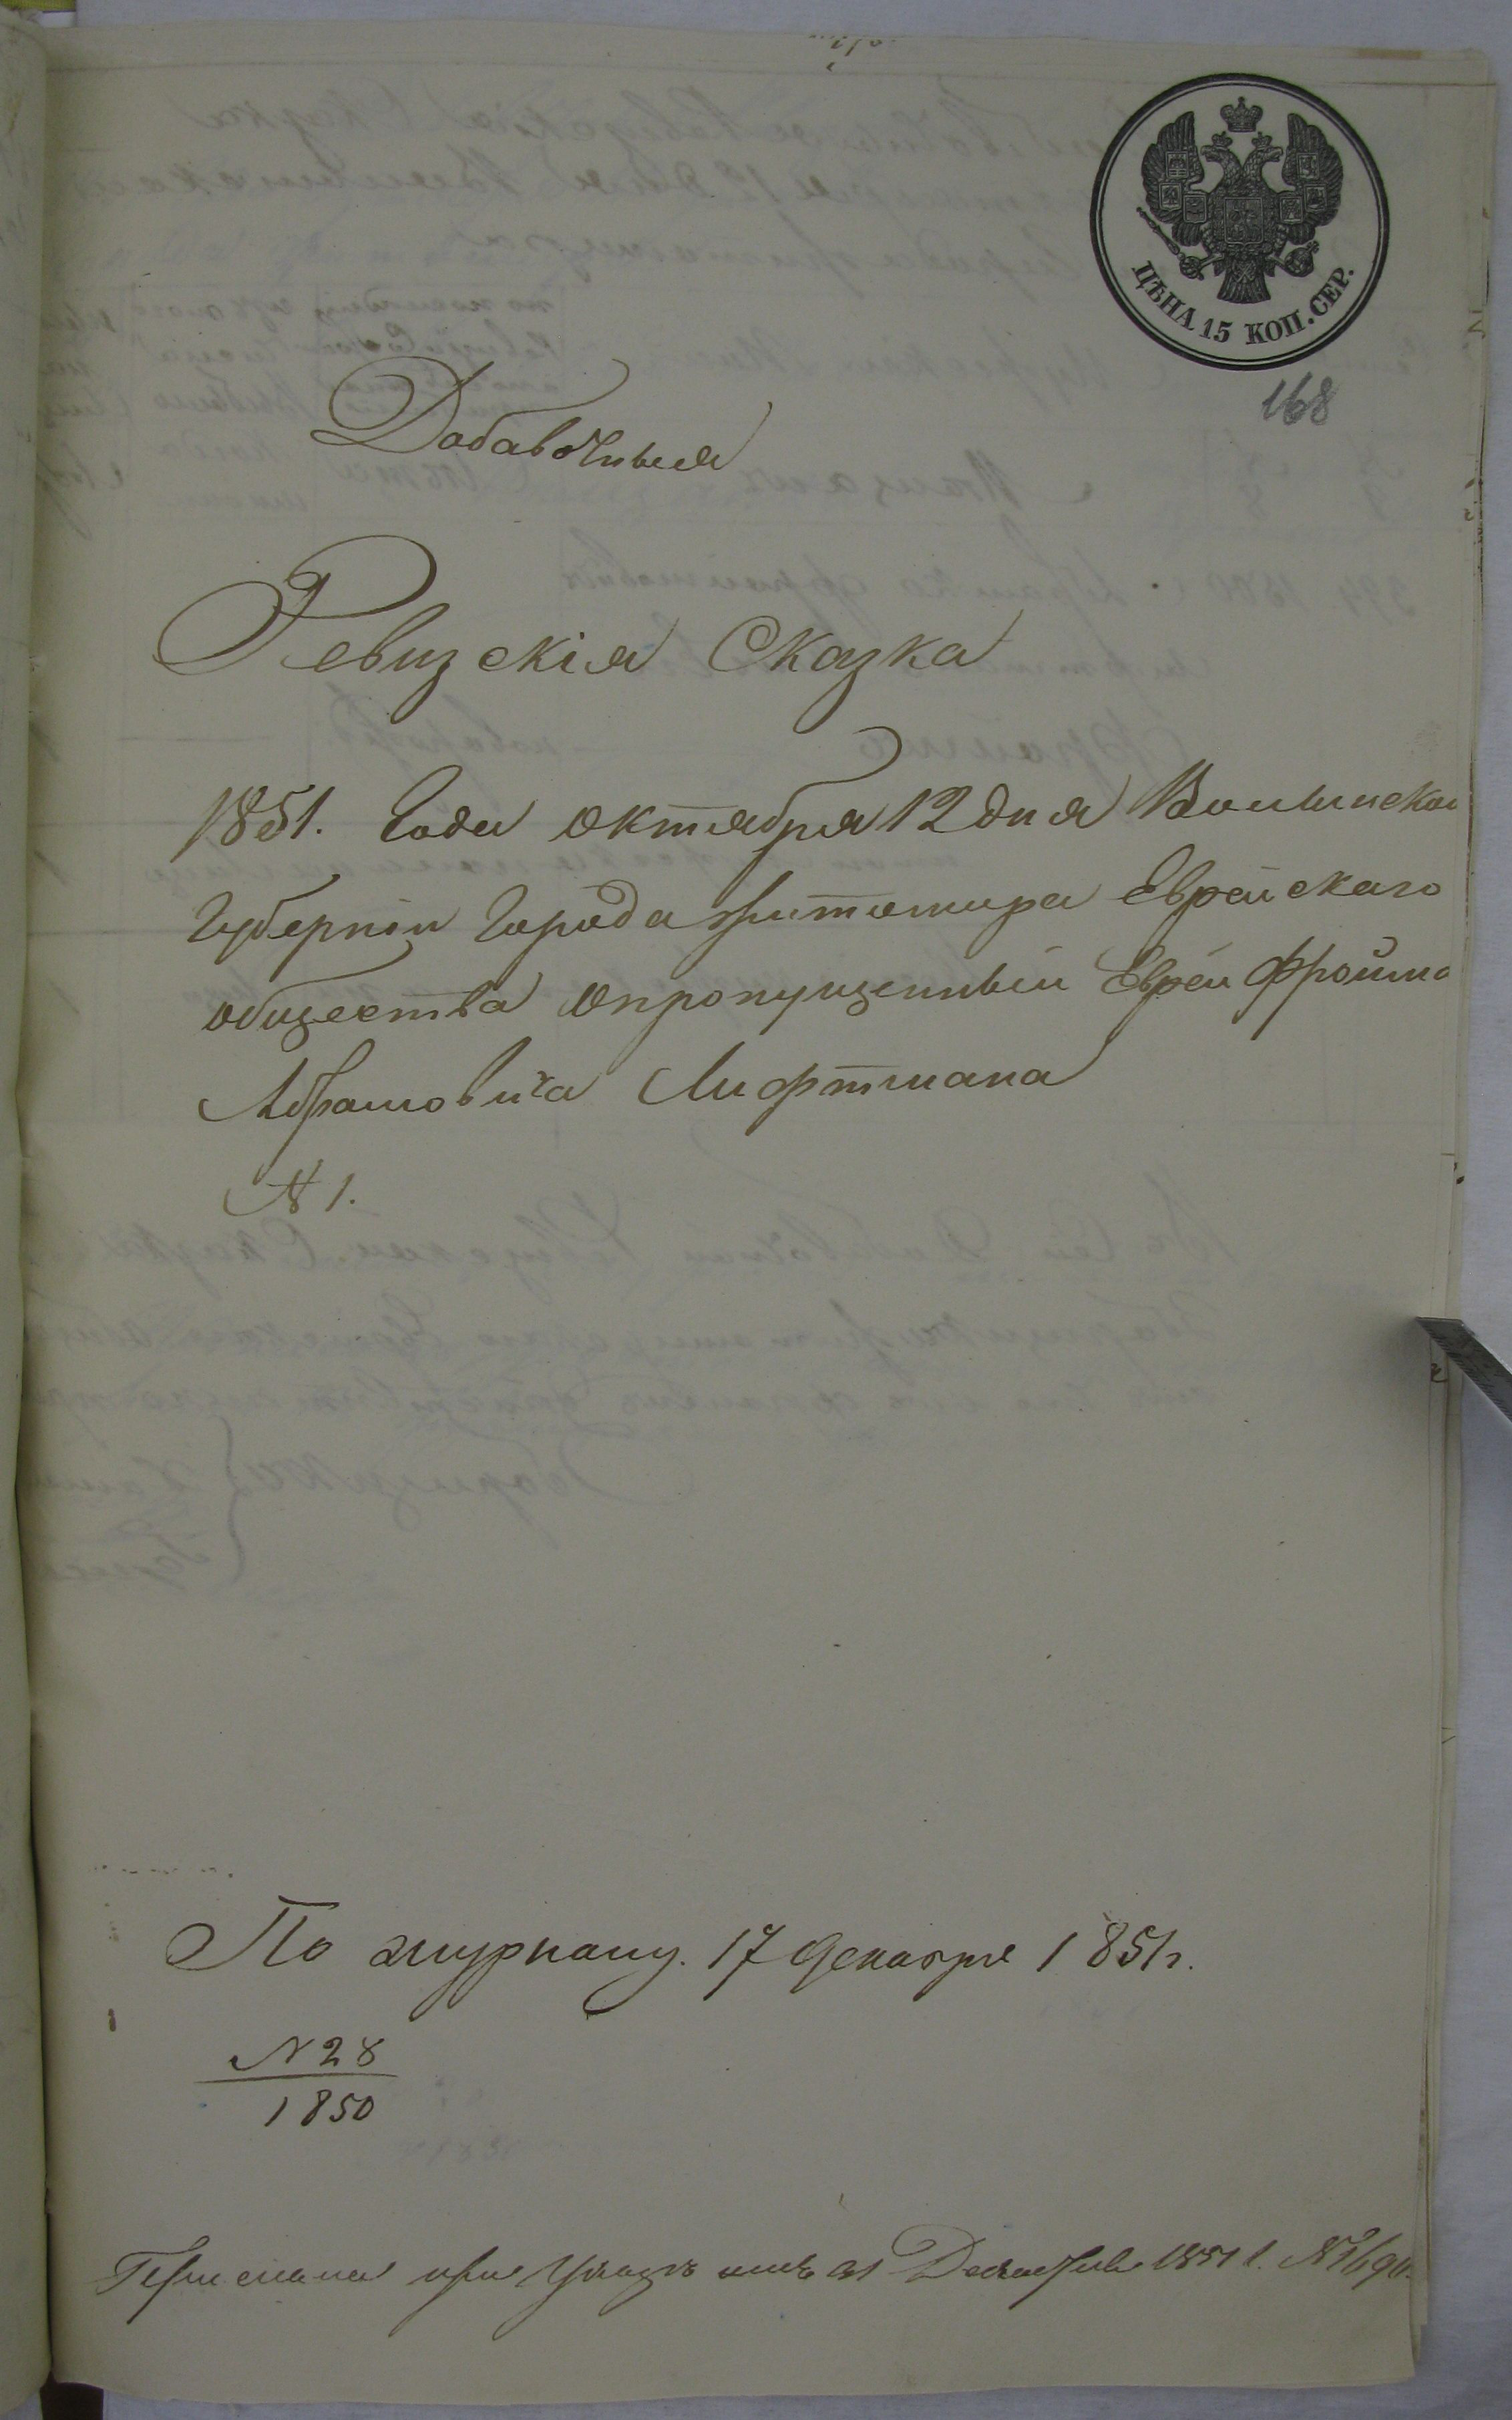 ЦѢНА 15 КОП. СЕР.
168
Добавочныя
Ревизскія Сказка
1851. Года октября 12 дня Волынской
Губерніи Города Житомира Еврейскаго
общества опропущенный Еврей Фройма
Абрамовича Лифтмана
N 1.
По журналу. 17 декабря 1851 г.
N 28
1850
Прислана при Указѣ отъ 31 Декабря 1851 г.